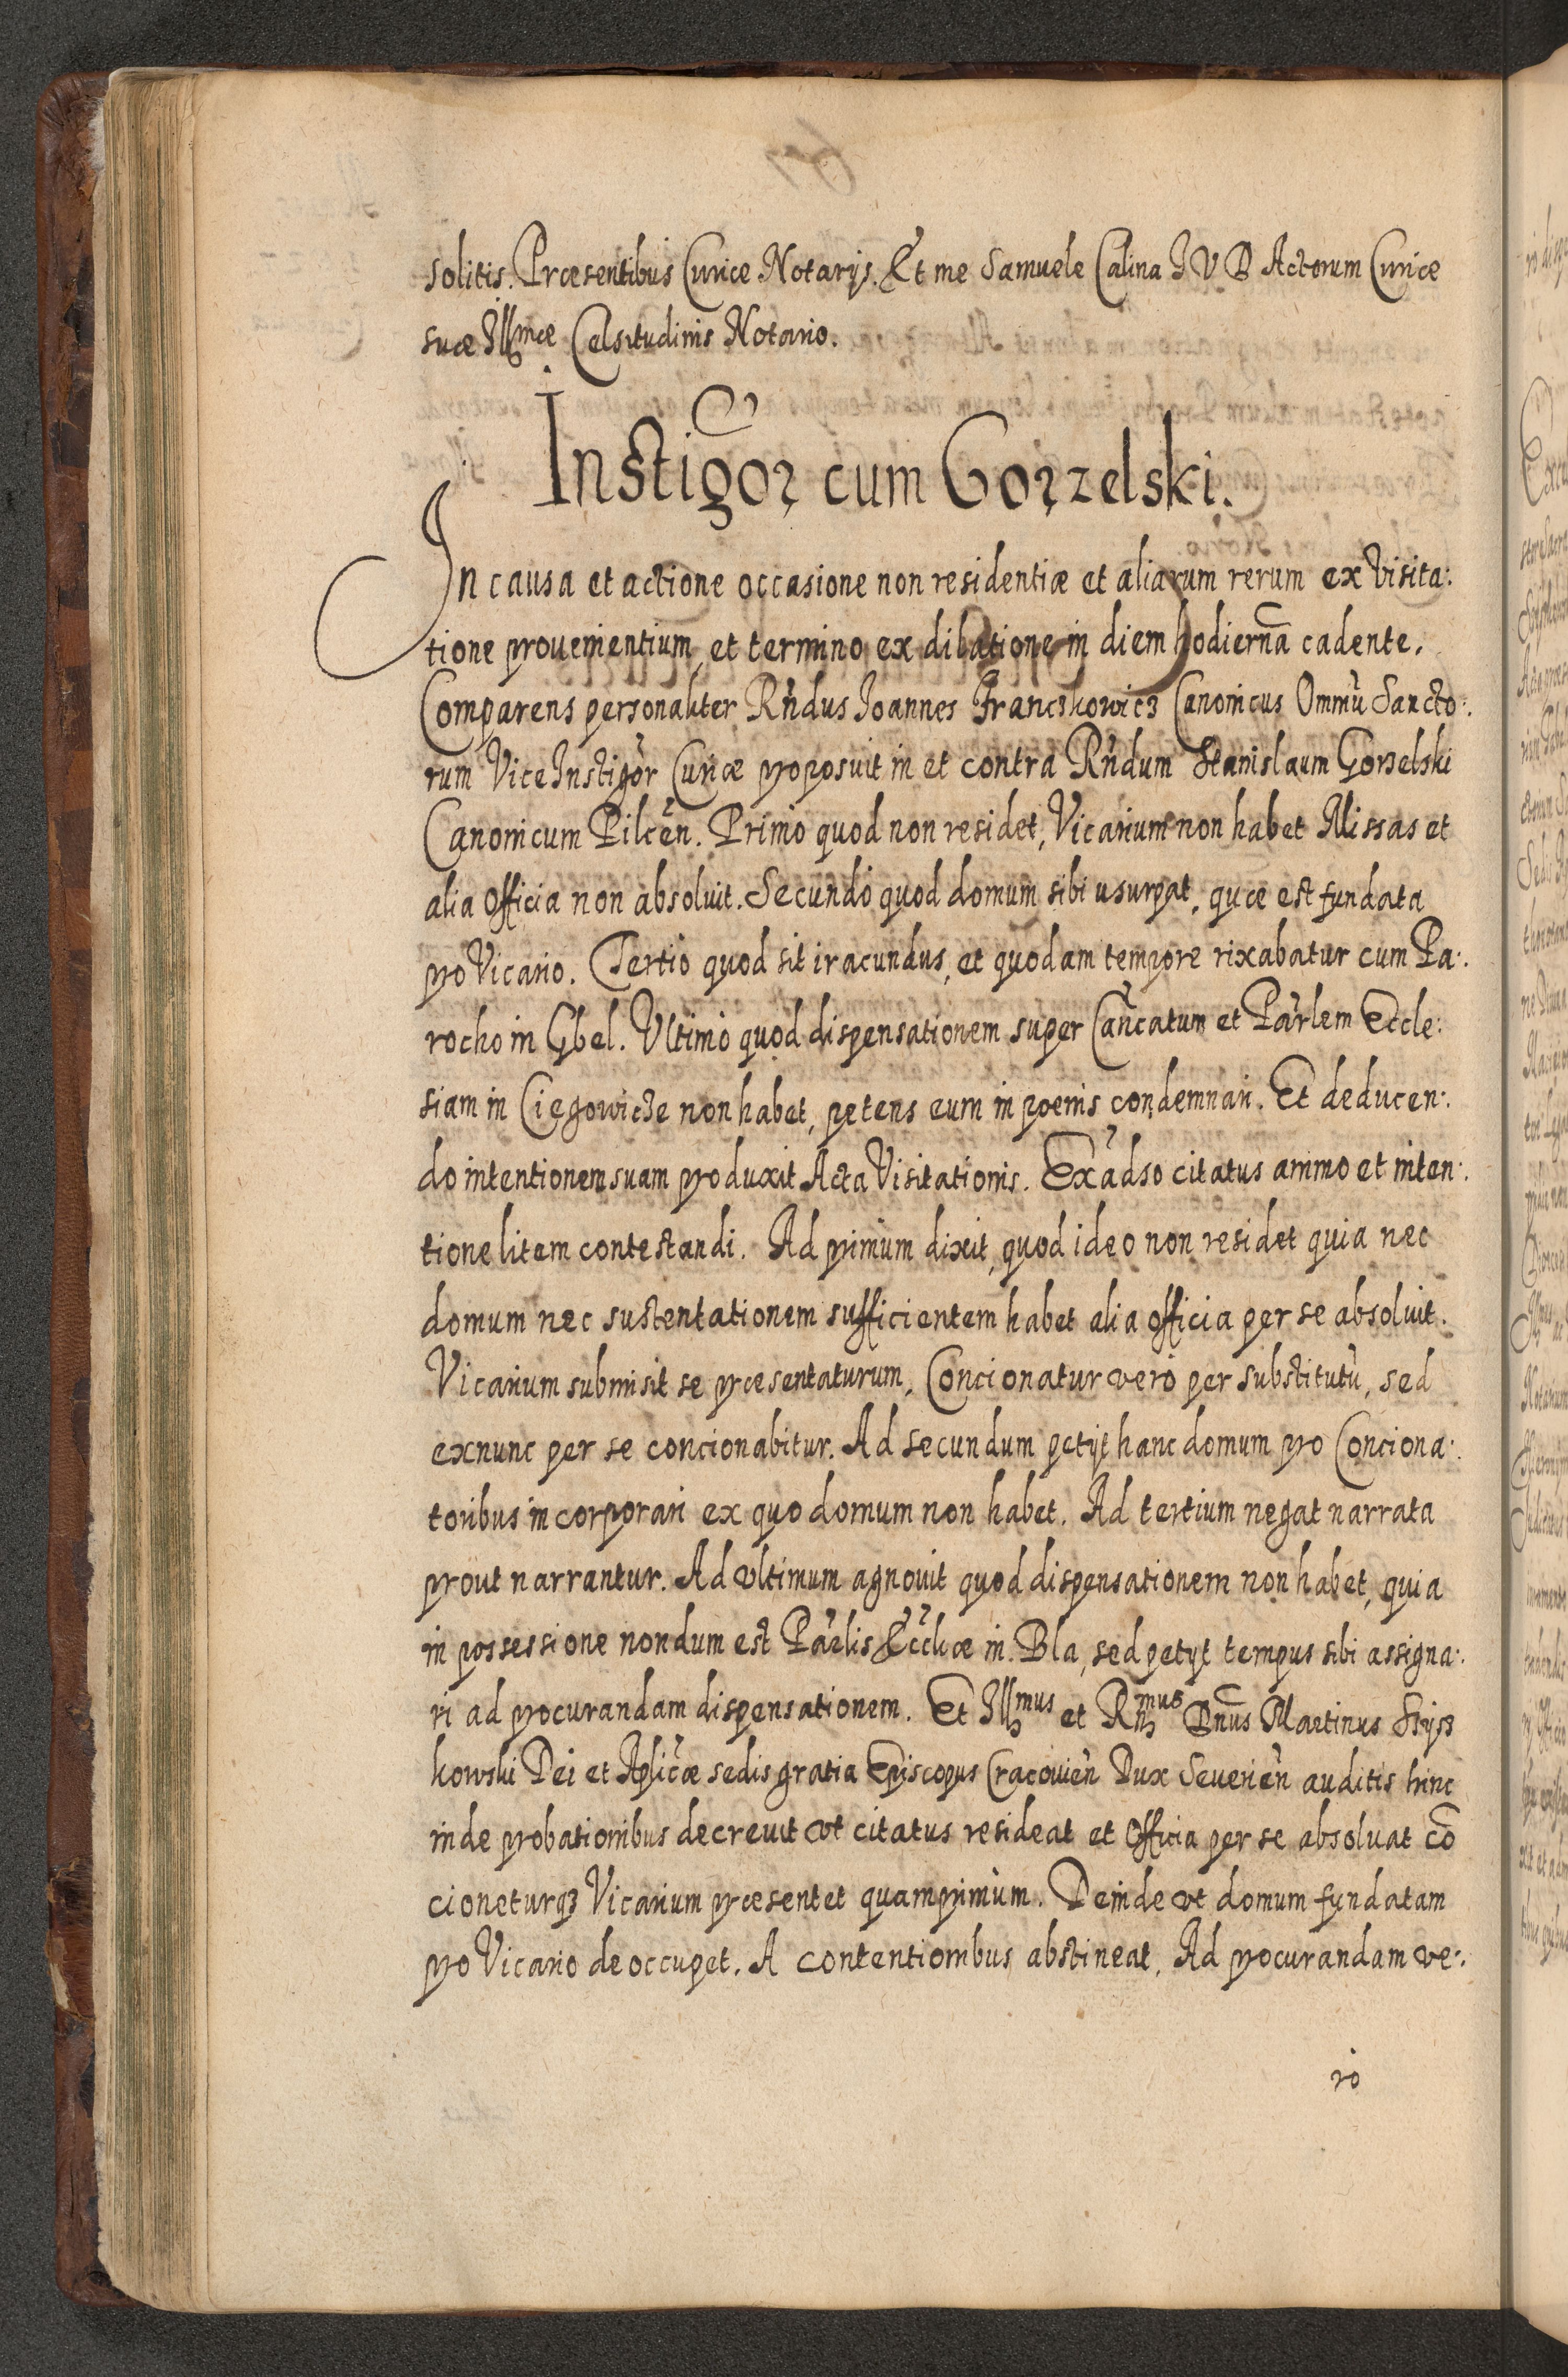 solitis. Præsentibus Curiæ Notarijs. Et me Samuele Calina I V D Actorum Curiæ
suæ Illmæ Celsitudinis Notario.
Instigor cum Gorzelski.
In causa et actione occasione non residentiæ et aliarum rerum ex Visita:
tione prouenientium, et termino ex dilatione in diem hodiernā cadente.
Comparens personaliter Rndus Joannes Franczkowicz Canonicus Omniū Sancto:
rum ViceInstigōr Curiæ proposuit in et contra Rndum Stanislaum Gorzelski
Canonicum Pilcēn. Primo quod non residet, Vicarium non habet Missas et
alia Officia non absoluit. Secundò quod domum sibi usurpat, quæ est fundata
pro Vicario. Tertiò quod sit iracundus, et quodam tempore rixabatur cum Pa:
rocho in Gbel. Vltimò quod dispensationem super Cañcatum et Pārlem Eccle:
siam in Ciegowicze non habet, petens eum in poenis condemnari. Et deducen:
do intentionem suam produxit Acta Visitationis. Ex adso citatus animo et inten:
tione litem contestandi. Ad primùm dixit, quod ideo non residet quia nec
domum nec sustentationem sufficientem habet alia officia per se absoluit.
Vicarium submisit se præsentaturum, Concionatur verò per substitutū, sed
exnunc per se concionabitur. Ad secundum petijt hanc domum pro Conciona:
toribus incorporari ex quo domum non habet. Ad tertium negat narrata
prout narrantur. Ad vltimum agnouit quod dispensationem non habet, quia
in possessione nondum est Pārlis Ecclīæ in Bla, sed petijt tempus sibi assigna:
ri ad procurandam dispensationem. Et Illmus et Rmus Dnūs Martinus Szysz
kowski Dei et Aplicæ sedis gratia Episcopus Cracouieñ Dux Seuerieñ auditis hinc
inde probationibus decreuit vt citatus resideat et Officia per se absoluat cō
cioneturqз Vicarium præsentet quamprimùm. Deinde vt domum fundatam
pro Vicario deoccupet. A contentionibus abstineat. Ad procurandam ve:
rò